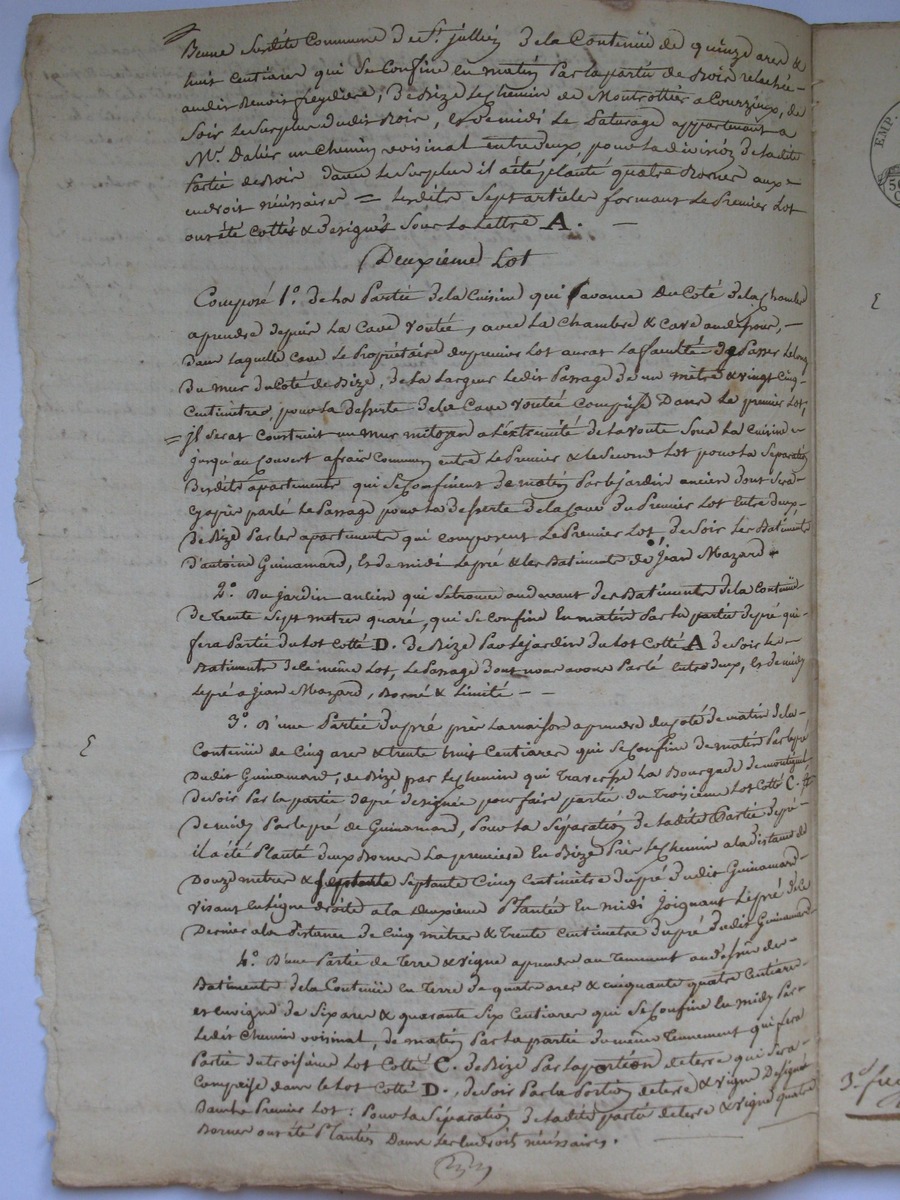 Beune Susditte Commune de St. jullien de la Contenüe de quinze ares &
huit Centiares qui Se Confine en matin Par la partie de Bois relachée
audit Benoit, de Bize Le chemin de Montrottier a Courzieux, de
Soir Le Surplus dudit Bois, Et de midi Le Paturage appartenant a
Mr. Dalier un chemin voisinal entre deux, pour la division de la dite
Partie de Bois dans le Surplus il a été planté quatre Bornes aux
endroit nécéssaires = Lesdits Sept articles formant Le Premier Lot
ont été Cottés & désignés Sous La Lettre A.
Deuxieme Lot
Composé 1o. de La Partie de la Cuisine qui Savance Du Coté de la Chambre
a prendre depuis La Cave voutée, avec La Chambre & Cave au dessous,
dans laquelle cave Le Propriétaire du premier Lot aurat La faculté de Passer Le long
Du mur du Coté de Bize, de la Largeur Ledit Passage de un mètre & vingt Cinq
Centimètres, pour la desserte de la Cave voutée Comprise Dans Le premier Lot,
= il Serat Construit un mur mitoyen a L'extremité de la voute Sous La Cuisine
jusqu'au Couvert a frais Commun entre Le Premier & le Second Lot pour la Séparation
Desdits apartements qui Se Confinent de matin Par le jardin ancien dont Sera
cy après parlé Le Passage pour la desserte de la Cave du Premier Lot Entre deux
de Bize Par les apartements qui composent Le Premier Lot, de Soir Les Batiments
d'antoine Guinamard, Et de midi Le pré & les Batiments de Jean Mazard
2o. Du jardin ancien qui Se trouve au devant des Batiments de la Contenüe
de Trente Sept metres quaré, qui Se Confine En matin Par la partie du pré qui
fera Partie du Lot Cotté D. de Bize Par Le jardin du Lot Cotté A de Soir Les
Batiments de le même Lot, Le Passage dont nous avons Parlé Entre deux, Et de midi
Le pré a Jean Mazard, Borné & Limité
3o. D'une Partie du pré près La maison a prendre du Coté de matin de la
Contenüe de Cinq ares & trente huit Centiares qui Se Confine de matin Par le pré
Dudit Guinamard, de Bize par Le chemin qui Traverse La Bourgade de montgul
de Soir Par la partie de pré désignée pour faire partie du Troisieme Lot Cotté C. &
de midy Par le pré de Guinamard, Pour la Séparation de la dite Partie de pré
il a été Planté deux Bornes La premiere En Bize Près Le Chemin a la distance de
Douze metres & Septante Cinq Centimètre du pré dudit Guinamard
visant En Ligne droite a la Deuxieme Plantée En midi joignant Le pré de Ce
Dernier a la distance de Cinq mètres & Trente Centimetre du pré dudit Guinamard
4o. D'une Partie de Terre & vigne a prendre au Tennement au dessus des
Batiments de la Contenüe en Terre de quatre ares & Cinquante quatre Centiares
et en vigne de Six ares & quarante Six Centiares qui Se Confine En midy Par
Le dit Chemin voisinal, de matin Par la partie du même Tennement qui fera
Partie du troisième Lot Cotté C. de Bize Par la portion de terre qui Sera
Comprise dans le Lot Cotté D., de Soir Par la Portion de terre & vigne Désigné
dans le Premier Lot : Pour la Séparation de la dite partie de terre & vigne quatre
Bornes ont été Plantées Dans Les Endroits nécéssaires.
EMP.
3o.